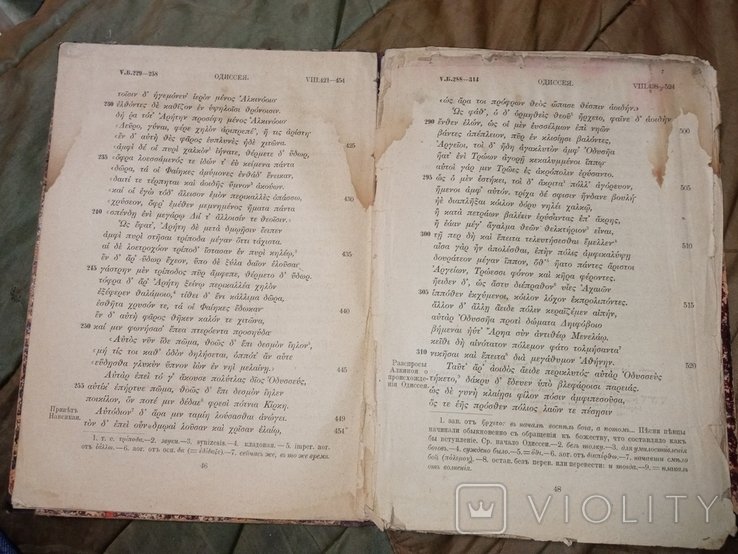 V.Б.229—258 ОДИССЕЯ. VIII.421—454
τοῖσιν δ' ἡγεμόνευ' ἱερὸν μένος Ἀλκινόοιο
230 ἐλθόντες δὲ καθῖζον ἐν ὑψηλοῖσι θρόνοισιν.
δή ῥα τότ' Ἀρήτην προσέφη μένος Ἀλκινόοιο
«Δεῦρο, γύναι, φέρε χηλὸν ἀριπρεπέ', ἥ τις ἀρίστη·
«ἐν δ' αὐτὴ θὲς φᾶρος ἐυπλυνὲς ἠδὲ χιτῶνα. 425
«ἀμφὶ δέ οἱ πυρὶ χαλκὸν ἰήνατε, θέρμετε δ' ὕδωρ,
235 «ὄφρα λοεσσάμενός τε ἰδών τ' εὖ κείμενα πάντα
«δῶρα, τά οἱ Φαίηκες ἀμύμονες ἐνθάδ' ἔνεικαν,
«δαιτί τε τέρπηται καὶ ἀοιδῆς ὕμνον ἀκούων.
«καί οἱ ἐγὼ τόδ' ἄλεισον ἐμὸν περικαλλὲς ὀπάσσω, 430
«χρύσεον, ὄφρ' ἐμέθεν μεμνημένος ἤματα πάντα
240 «σπένδῃ ἐνὶ μεγάρῳ Διί τ' ἄλλοισίν τε θεοῖσιν.»
Ὣς ἔφατ', Ἀρήτη δὲ μετὰ δμῳῇσιν ἔειπεν
ἀμφὶ πυρὶ στῆσαι τρίποδα μέγαν ὅττι τάχιστα.
αἱ δὲ λοετροχόον τρίποδ' ἵστασαν ἐν πυρὶ κηλέῳ, 435
ἐν δ' ἄρ' ὕδωρ ἔχεον, ὑπὸ δὲ ξύλα δαῖον ἑλοῦσαι·
245 γάστρην μὲν τρίποδος πῦρ ἄμφεπε, θέρμετο δ' ὕδωρ.
τόφρα δ' ἄρ' Ἀρήτη ξείνῳ περικαλλέα χηλὸν
ἐξέφερεν θαλάμοιο, τίθει δ' ἐνὶ κάλλιμα δῶρα,
ἐσθῆτα χρυσόν τε, τά οἱ Φαίηκες ἔδωκαν
ἐν δ' αὐτὴ φᾶρος θῆκεν καλόν τε χιτῶνα,
250 καί μιν φωνήσασ' ἔπεα πτερόεντα προσηύδα
«Αὐτὸς νῦν ἴδε πῶμα, θοῶς δ' ἐπὶ δεσμὸν ἴηλον,
«μή τίς τοι καθ' ὁδὸν δηλήσεται, ὁππότ' ἂν αὖτε
«εὕδῃσθα γλυκὺν ὕπνον ἰὼν ἐν νηῒ μελαίνῃ.» 445
Αὐτὰρ ἐπεὶ τό γ' ἄκουσε πολύτλας δῖος Ὀδυσσεύς,
255 αὐτίκ' ἐπήρτυε πῶμα, θοῶς δ' ἐπὶ δεσμὸν ἴηλεν
ποικίλον, ὅν ποτέ μιν δέδαε φρεσὶ πότνια Κίρκη.
Привѣтъ Навсикаи.
Αὐτόδιον δ' ἄρα μιν ταμίη λούσασθαι ἀνώγει 449
τὸν δ' ἐπεὶ οὖν δμῳαὶ λοῦσαν καὶ χρῖσαν ἐλαίῳ, 454
46
V.Б.288—314 ОДИССЕЯ. VIII.498—524
«ὡς ἄρα τοι πρόφρων θεὸς ὤπασε θέσπιν ἀοιδήν.»
Ὣς φάθ', ὁ δ' ὁρμηθεὶς θεοῦ ἤρχετο, φαῖνε δ' ἀοιδὴν
290 ἔνθεν ἑλών, ὡς οἱ μὲν ἐυσσέλμων ἐπὶ νηῶν 500
βάντες ἀπέπλειον, πῦρ ἐν κλισίῃσι βαλόντες,
Ἀργεῖοι, τοὶ δ' ἤδη ἀγακλυτὸν ἀμφ' Ὀδυσῆα
ἥατ' ἐνὶ Τρώων ἀγορῇ κεκαλυμμένοι ἵππῳ·
αὐτοὶ γάρ μιν Τρῶες ἐς ἀκρόπολιν ἐρύσαντο.
295 ὣς ὁ μὲν ἑστήκει, τοὶ δ' ἄκριτα πόλλ' ἀγόρευον, 505
ἥμενοι ἀμφ' αὐτόν, τρίχα δέ σφισιν ἥνδανε βουλή
ἠὲ διαπλῆξαι κοῖλον δόρυ νηλέι χαλκῷ,
ἢ κατὰ πετράων βαλέειν ἐρύσαντας ἐπ' ἄκρης,
ἢ ἐάαν μέγ' ἄγαλμα θεῶν θελκτήριον εἶναι,
300 τῇ περ δὴ καὶ ἔπειτα τελευτήσεσθαι ἔμελλεν· 510
αἶσα γὰρ ἦν ἀπολέσθαι, ἐπὴν πόλις ἀμφικαλύψῃ
δουράτεον μέγαν ἵππον, ὅθ' ἥατο πάντες ἄριστοι
Ἀργείων, Τρώεσσι φόνον καὶ κῆρα φέροντες.
ἤειδεν δ', ὡς ἄστυ διέπραθον υἷες Ἀχαιῶν
305 ἱππόθεν ἐκχύμενοι, κοῖλον λόχον ἐκπρολιπόντες. 515
ἄλλον δ' ἄλλῃ ἄειδε πόλιν κεραϊζέμεν αἰπήν,
αὐτὰρ Ὀδυσσῆα προτὶ δώματα Δηιφόβοιο
βήμεναι ἠύτ' Ἄρηα σὺν ἀντιθέῳ Μενελάῳ.
κεῖθι δὴ αἰνότατον πόλεμον φάτο τολμήσαντα
310 νικῆσαι καὶ ἔπειτα διὰ μεγάθυμον Ἀθήνην. 520
Разспросы Алкиноя о происхожденіи Одиссея.
Ταῦτ' ἄρ' ἀοιδὸς ἄειδε περικλυτός· αὐτὰρ Ὀδυσσεὺς
τήκετο, δάκρυ δ' ἔδευεν ὑπὸ βλεφάροισι παρειάς.
ὡς δὲ γυνὴ κλαίῃσι φίλον πόσιν ἀμφιπεσοῦσα,
ὅς τε ἑῆς πρόσθεν πόλιος λαῶν τε πέσῃσιν
48
VIOLITY